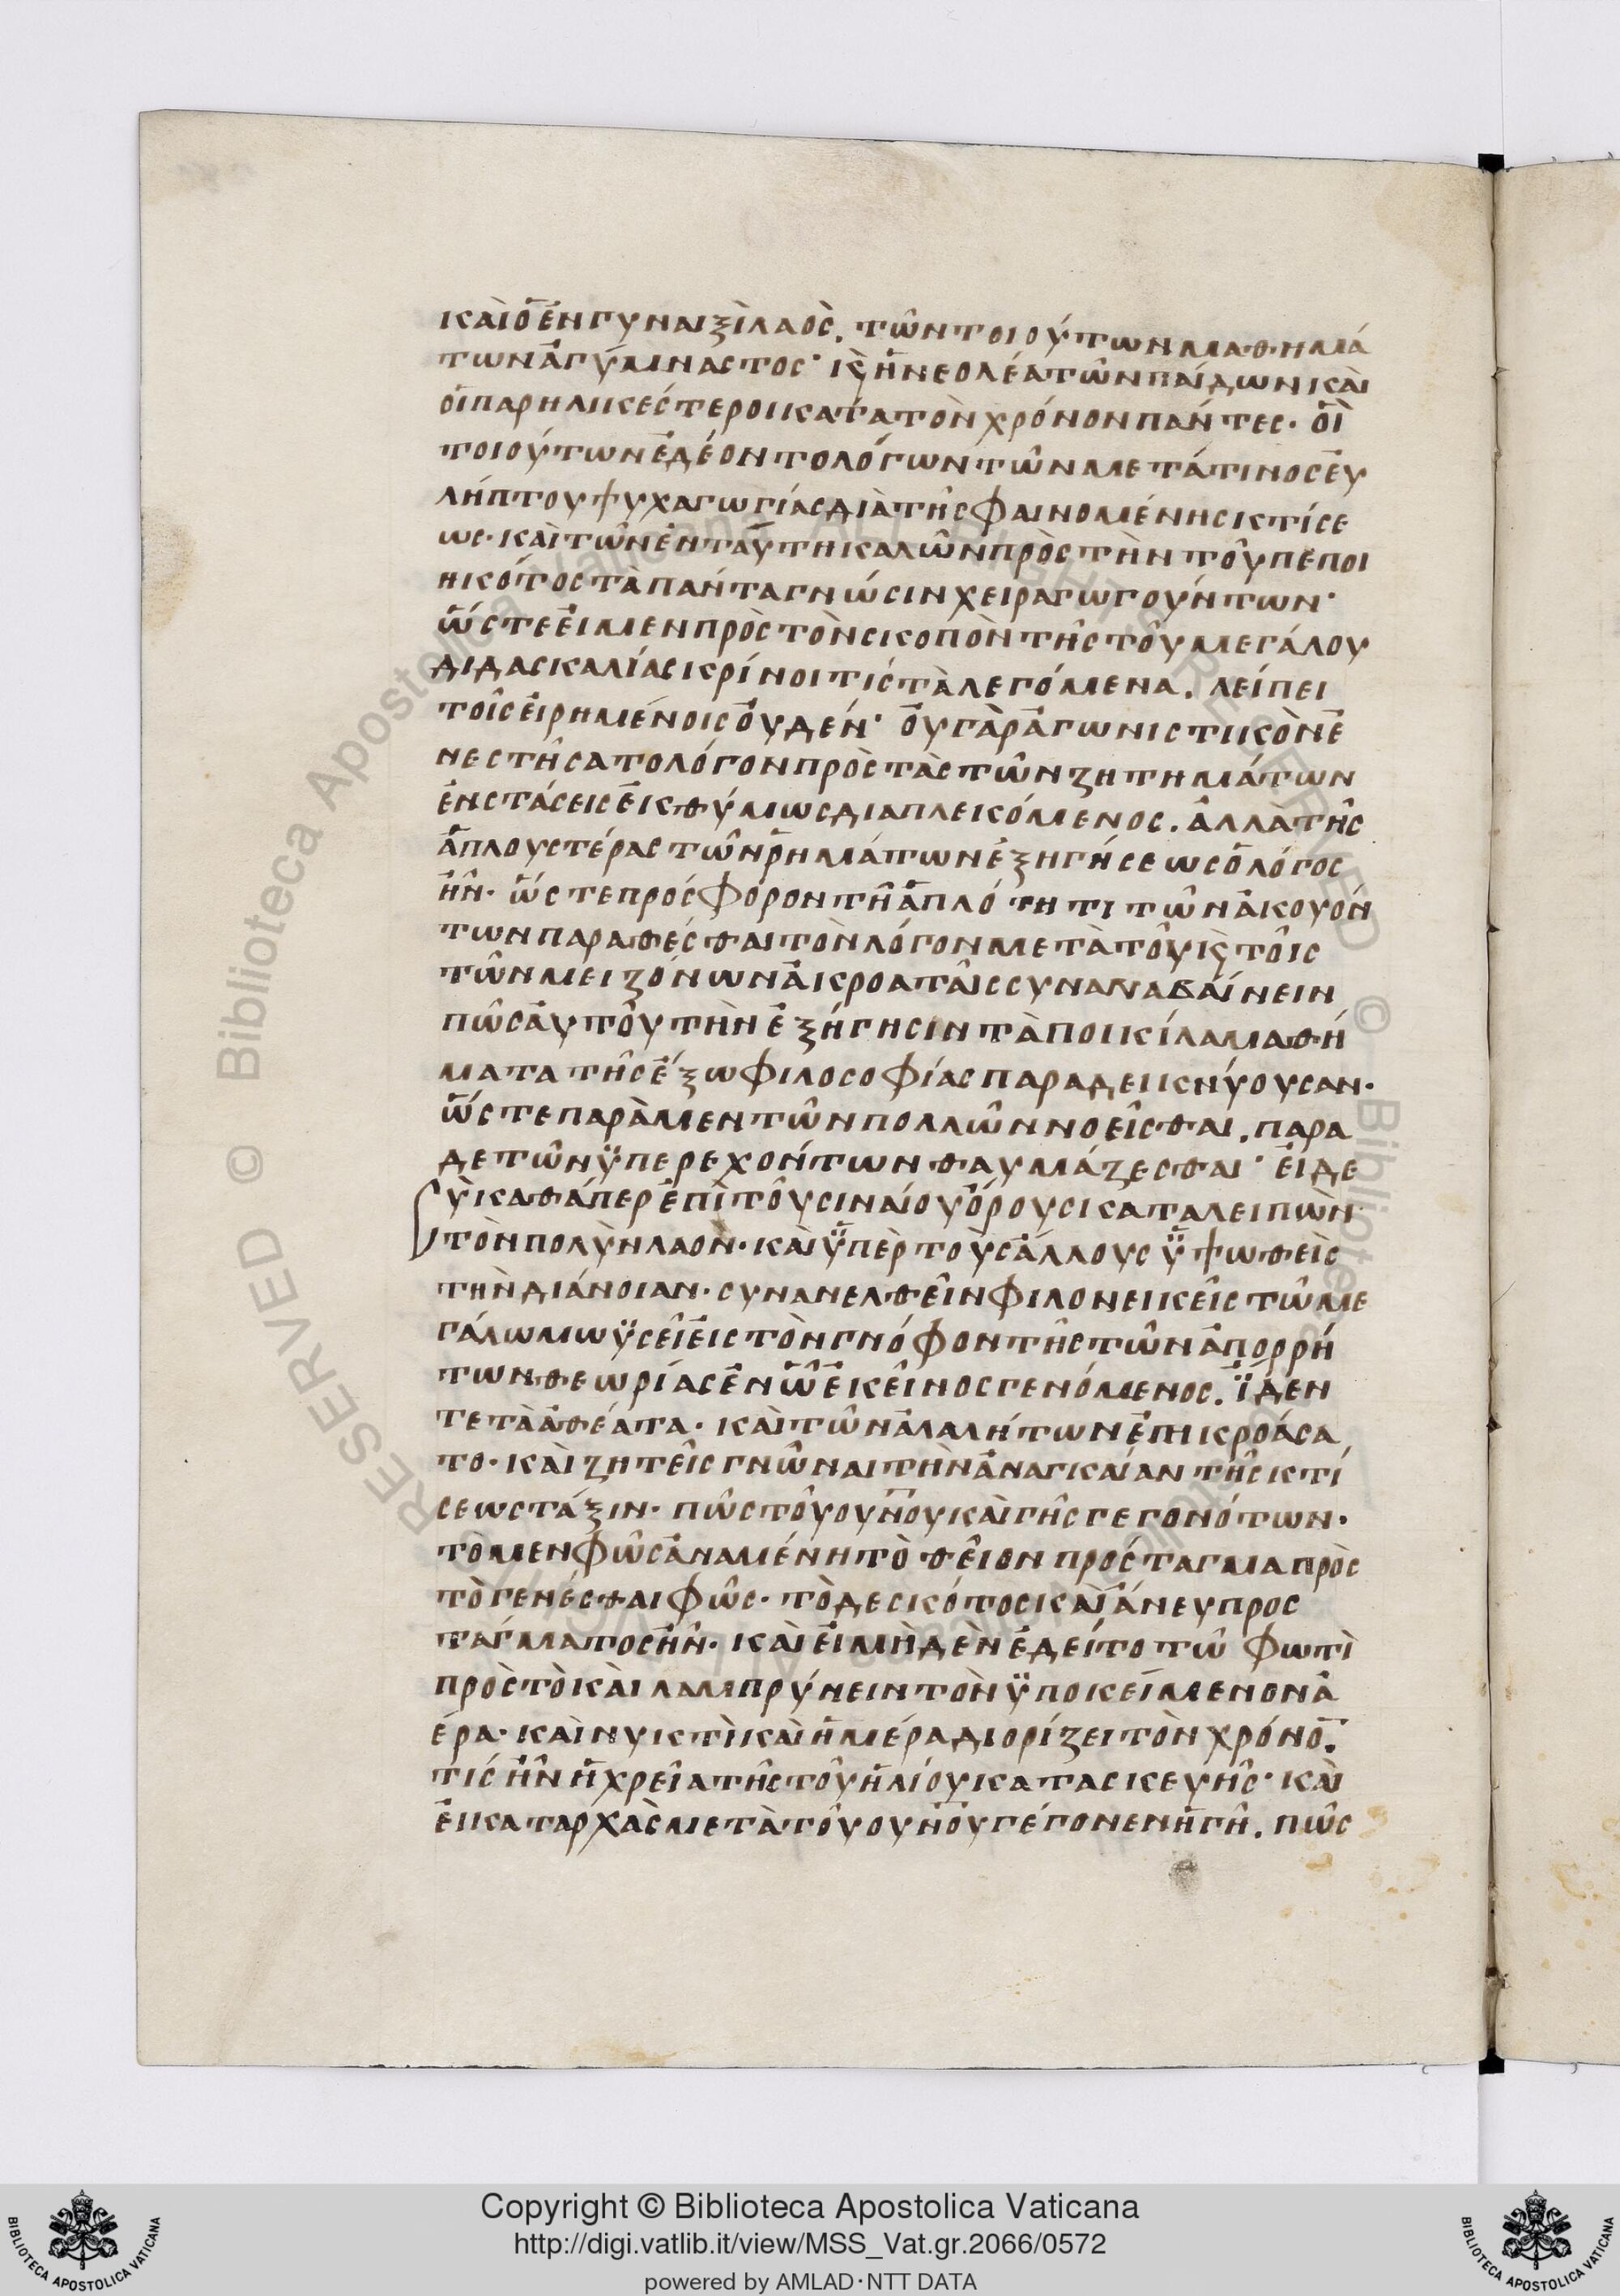 καὶ ὁ ἐν γυναιξὶ λαὸς. τῶν τοιούτων μαθημά
των ἀγύμναστος· κ(αὶ) ἡ νεολέα τῶν παίδων καὶ
οἱ παρηλικέστεροι κατὰ τὸν χρόνον πάντες. οἳ
τοιούτων ἐδέοντο λόγων τῶν μετά τινος εὐ
λήπτου ψυχαγωγίας διὰ τῆς φαινομένης κτίσε
ως. καὶ τῶν ἐν ταύτη καλῶν πρὸς τὴν τοῦ πεποι
ηκότος τὰ πάντα γνώσιν χειραγωγούντων·
ὥστε εἰ μεν πρὸς τὸν σκοπὸν τῆς τοῦ μεγάλου
διδασκαλίας κρίνοι τίς τὰ λεγόμενα. λείπει
τοῖς εἰρημένοις οὐδέν· οὐ γὰρ ἀγωνιστικὸν ἐ
νεστήσατο λόγον πρὸς τὰς τῶν ζητημάτων
ἐνστάσεις ἐκθύμως διαπλεκόμενος. ἀλλὰ τῆς
ἁπλουστέρας τῶν ῥημάτων ἐξηγήσεως ὁ λόγος
ἦν. ὥστε προςφορον τῆ ἁπλότητι τῶν ἀκουόν
των παραθέσθαι τὸν λόγον μετὰ τοῦ κ(αὶ) τοῖς
τῶν μειζόνων ἀκροαταῖς συναναβαίνειν
πῶς αὐτοῦ τὴν ἐξήγησιν τὰ ποικίλα μαθή
ματα τῆς ἔξω φιλοσοφίας παραδεικνύουσαν.
ὥστε παρὰ μεν τῶν πολλῶν νοεῖσθαι. παρα
δε τῶν ὑπερεχόντων θαυμάζεσθαι· εἰ δε
ὺ καθάπερ ἐπὶ τοῦ σιναίου ὄρους καταλειπὼν
τὸν πολὺν λαὸν. καὶ ὑπὲρ τοὺς ἄλλους ὑψωθεὶς
τὴν διάνοιαν. συνανελθεῖν φιλονεικεῖς τῶ με
γάλω μωϋσεῖ εἰς τὸν γνόφον τῆς τῶν ἀπορρή
των θεωρίας ἐν ὧ ἐκεῖνος γενόμενος. ἴδεν
τε τὰ ἀθέατα. καὶ τῶν ἀλαλήτων ἐπηκροάσα
το. καὶ ζητεῖς γνῶναι τὴν ἀναγκαίαν τῆς κτί
σεως τάξιν. πῶς τοῦ ουνου καὶ γῆς γεγονότων.
τὸ μεν φῶς ἀναμένη τὸ θεῖον πρόσταγμα πρὸς
τὸ γενέσθαι φῶς. τὸ δε σκότος καὶ ἄνευ προσ
τάγματος ἦν. καὶ εἰ μὴδὲν ἐδείτο τῶ φωτὶ
πρὸς τὸ καὶ λαμπρύνειν τὸν ὑποκείμενον ἀ
έρα. καὶ νυκτὶ καὶ ἡμέρα διορίζει τὸν χρόνο̅.
τίς ἦν ἡ χρεῖα τῆς τοῦ ἡλίου κατασκευῆς· καὶ
εἰ καταρχὰς μετὰ τοῦ ουνου γέγονεν ἡ γῆ. πῶς
Copyright © Biblioteca Apostolica Vaticana
http://digi.vatlib.it/view/MSS_Vat.gr.2066/0572
powered by AMLAD·NTT DATA